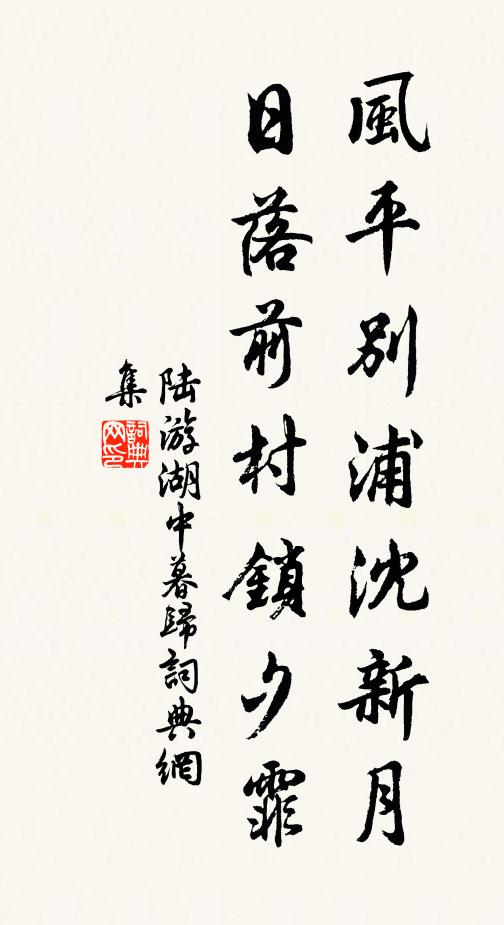 風平別浦沈新月
日落前村鎖夕霏
陸游湖中暮歸詞典網
集
詞典
网印